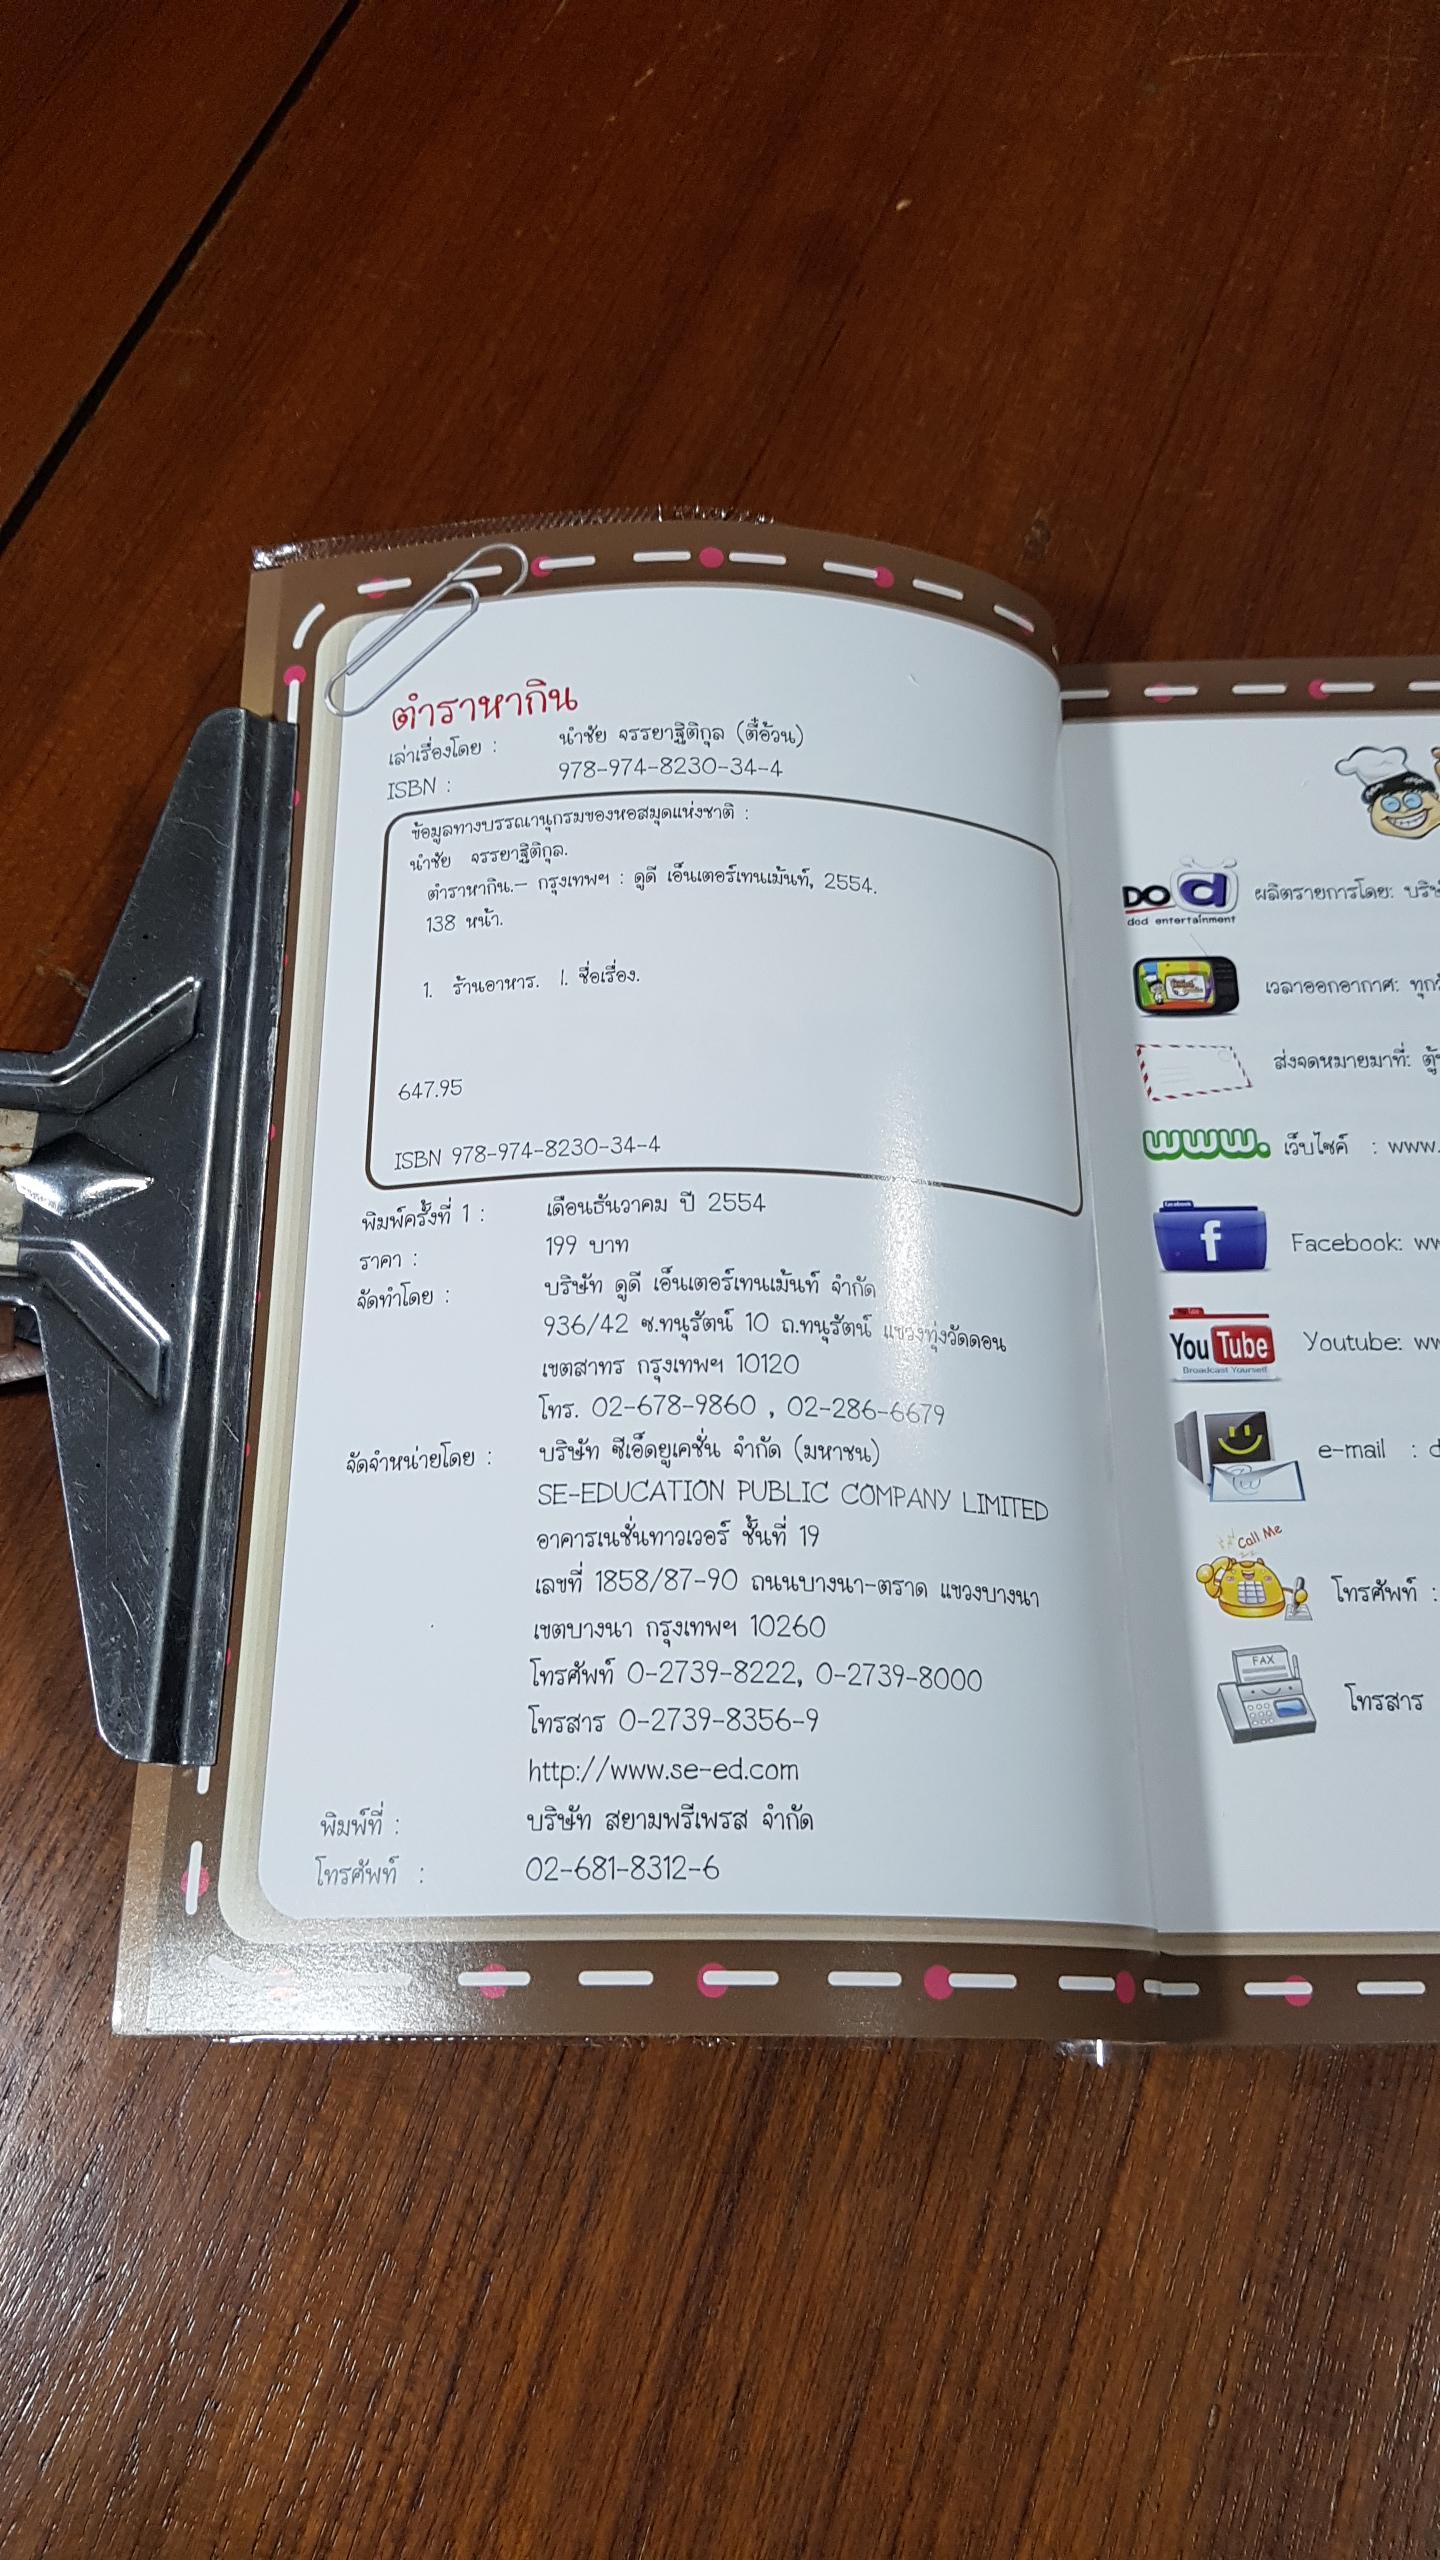 ตำราหากิน
เล่าเรื่องโดย : นำชัย จรรยาฐิติกุล (ตี๋อ้วน)
ISBN : 978-974-8230-34-4
ข้อมูลทางบรรณานุกรมของหอสมุดแห่งชาติ :
นำชัย จรรยาฐิติกุล.
ตำราหากิน.— กรุงเทพฯ : ดูดี เอ็นเตอร์เทนเม้นท์, 2554.
138 หน้า.
1. ร้านอาหาร. I. ชื่อเรื่อง.
647.95
ISBN 978-974-8230-34-4
พิมพ์ครั้งที่ 1 : เดือนธันวาคม ปี 2554
ราคา : 199 บาท
จัดทำโดย : บริษัท ดูดี เอ็นเตอร์เทนเม้นท์ จำกัด
936/42 ซ.ทนุรัตน์ 10 ถ.ทนุรัตน์ แขวงทุ่งวัดดอน
เขตสาทร กรุงเทพฯ 10120
โทร. 02-678-9860 , 02-286-6679
จัดจำหน่ายโดย : บริษัท ซีเอ็ดยูเคชั่น จำกัด (มหาชน)
SE-EDUCATION PUBLIC COMPANY LIMITED
อาคารเนชั่นทาวเวอร์ ชั้นที่ 19
เลขที่ 1858/87-90 ถนนบางนา-ตราด แขวงบางนา
เขตบางนา กรุงเทพฯ 10260
โทรศัพท์ 0-2739-8222, 0-2739-8000
โทรสาร 0-2739-8356-9
http://www.se-ed.com
พิมพ์ที่ : บริษัท สยามพรีเพรส จำกัด
โทรศัพท์ : 02-681-8312-6
DO d
dod entertainment
ผลิตรายการโดย:
เวลาออกอากาศ:
ส่งจดหมายมาที่:
www. เว็บไซค์ : www.
facebook
f Facebook:
You Tube
Broadcast Yourself
Youtube:
e-mail :
Call Me
โทรศัพท์ :
FAX
โทรสาร